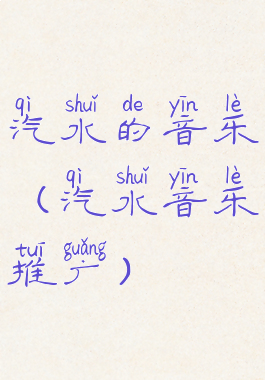 qì shuǐ de yīn lè
汽水的音乐
qì shuǐ yīn lè
(汽水音乐
tuī guǎng
推广)